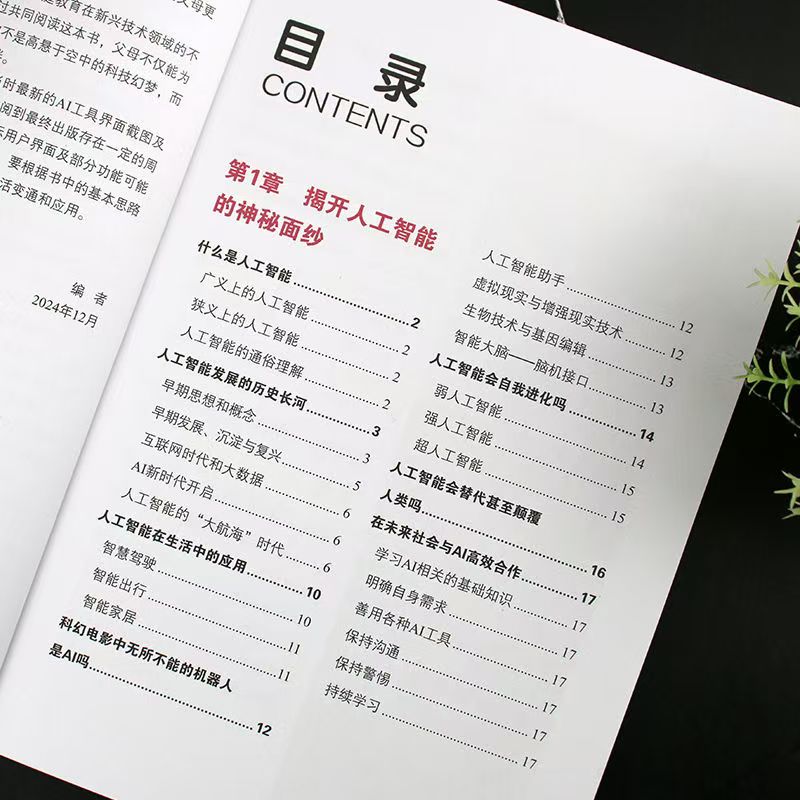 父母更
教育在新兴技术领域的不
过共同阅读这本书，父母不仅能为
不是高悬于空中的科技幻梦，而
当时最新的AI工具界面截图及
阅到最终出版存在一定的周
用户界面及部分功能可能
要根据书中的基本思路
活变通和应用。
编 者
2024年12月
目 录
CONTENTS
第1章 揭开人工智能
的神秘面纱
什么是人工智能 2
广义上的人工智能 2
狭义上的人工智能 2
人工智能的通俗理解 2
人工智能发展的历史长河 3
早期思想和概念 3
早期发展、沉淀与复兴 5
互联网时代和大数据 6
AI新时代开启 6
人工智能的“大航海”时代 6
人工智能在生活中的应用 10
智慧驾驶 10
智能出行 11
智能家居 11
科幻电影中无所不能的机器人
是AI吗 12
人工智能助手 12
虚拟现实与增强现实技术 12
生物技术与基因编辑 13
智能大脑——脑机接口 13
人工智能会自我进化吗 14
弱人工智能 14
强人工智能 15
超人工智能 15
人工智能会替代甚至颠覆
人类吗 16
在未来社会与AI高效合作 17
学习AI相关的基础知识 17
明确自身需求 17
善用各种AI工具 17
保持沟通 17
保持警惕 17
持续学习 17